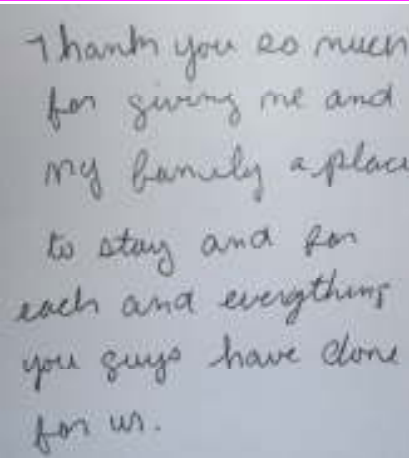 Thank you so much
for giving me and
my family a place
to stay and for
each and everything
you guys have done
for us.